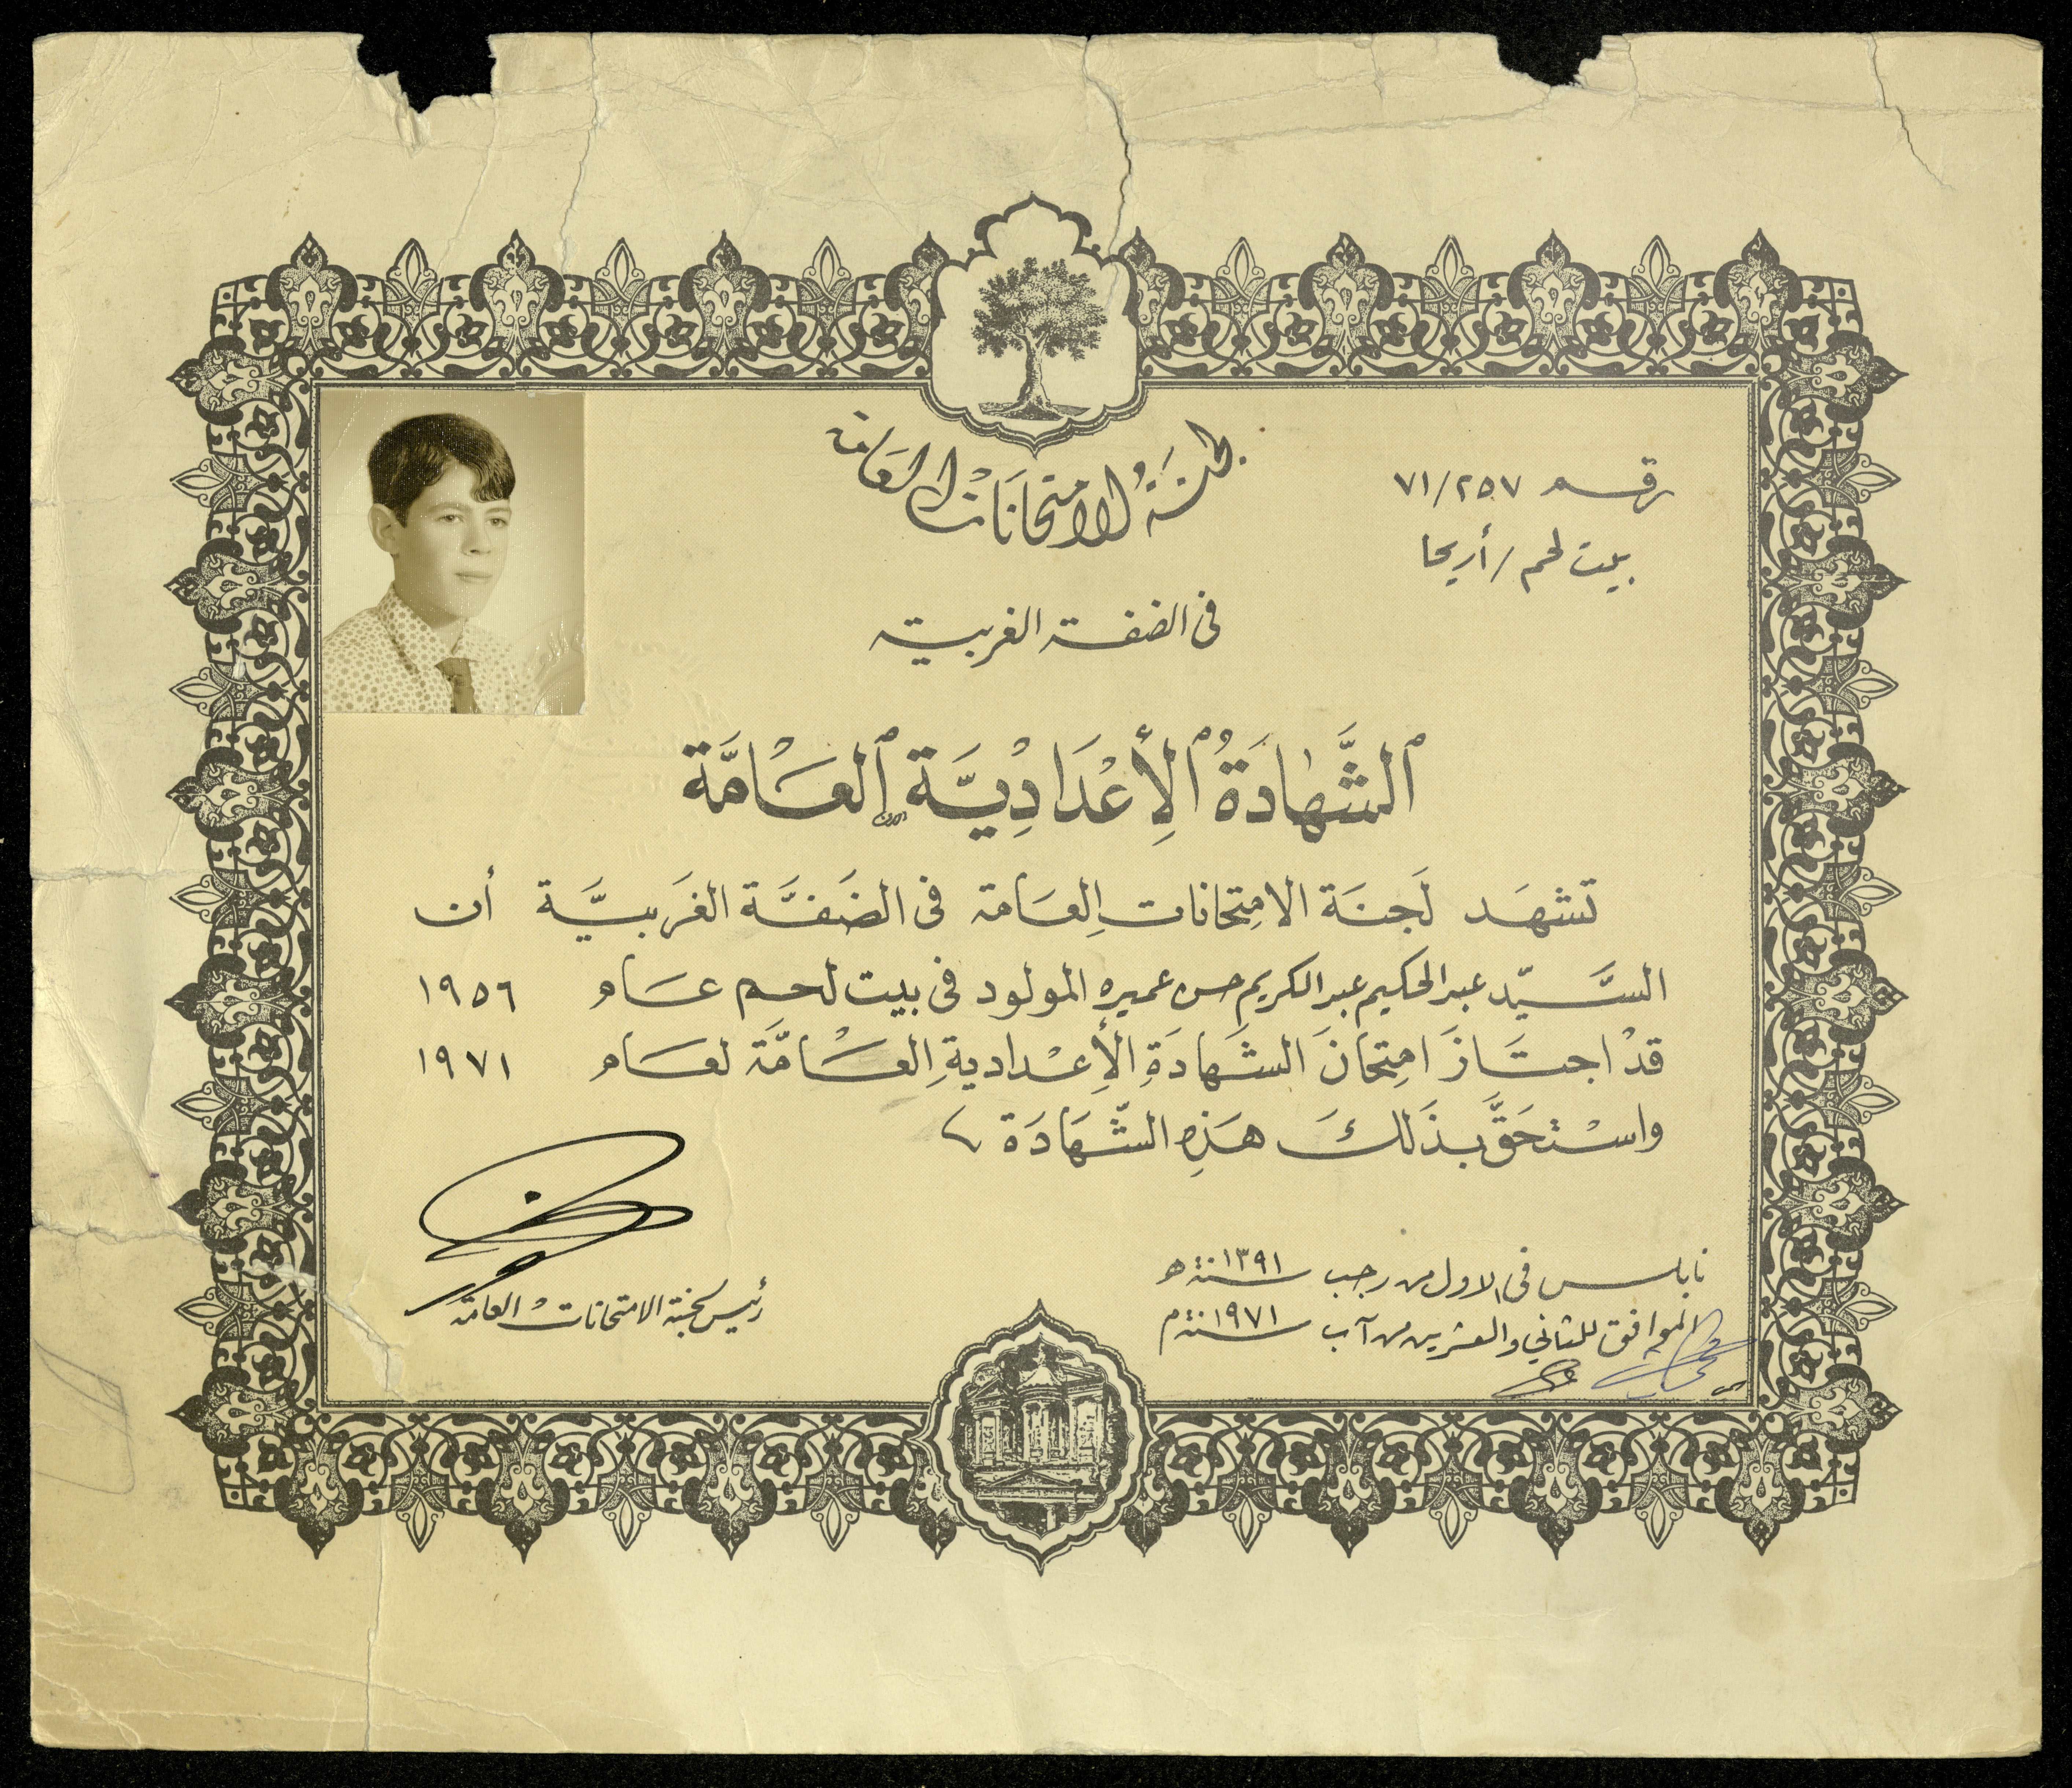 لجنَةُ الامتحَانَات العَامّة
رقم ٧١/٢٥٧
بيت لحم / أريحا
في الضفة الغربية
ٱلشَّهَادَةُ ٱلْأِعْدَادِيَّة ٱلعَامَّة
تشهَد لَجنَة الامِتحانات العَامة في الضَفَّة الغَربيَّة أن
السَّيّد عبد الحكيم عبد الكريم حسن عميره المولود في بيت لحم عَام ١٩٥٦
قدْ اجتَازَ امِتحَانَ الشَهادَةِ الأِعْدادية العَامَّة لعَام ١٩٧١
واسْتحَقَّ بذَلكَ هَذِهِ الشّهَادَة
نابلس في الاول من رجب سنة ١٣٩١ هـ
الموافق للثاني والعشرين من آب سنة ١٩٧١ م
رئيس لجنة الامتحانات العامة